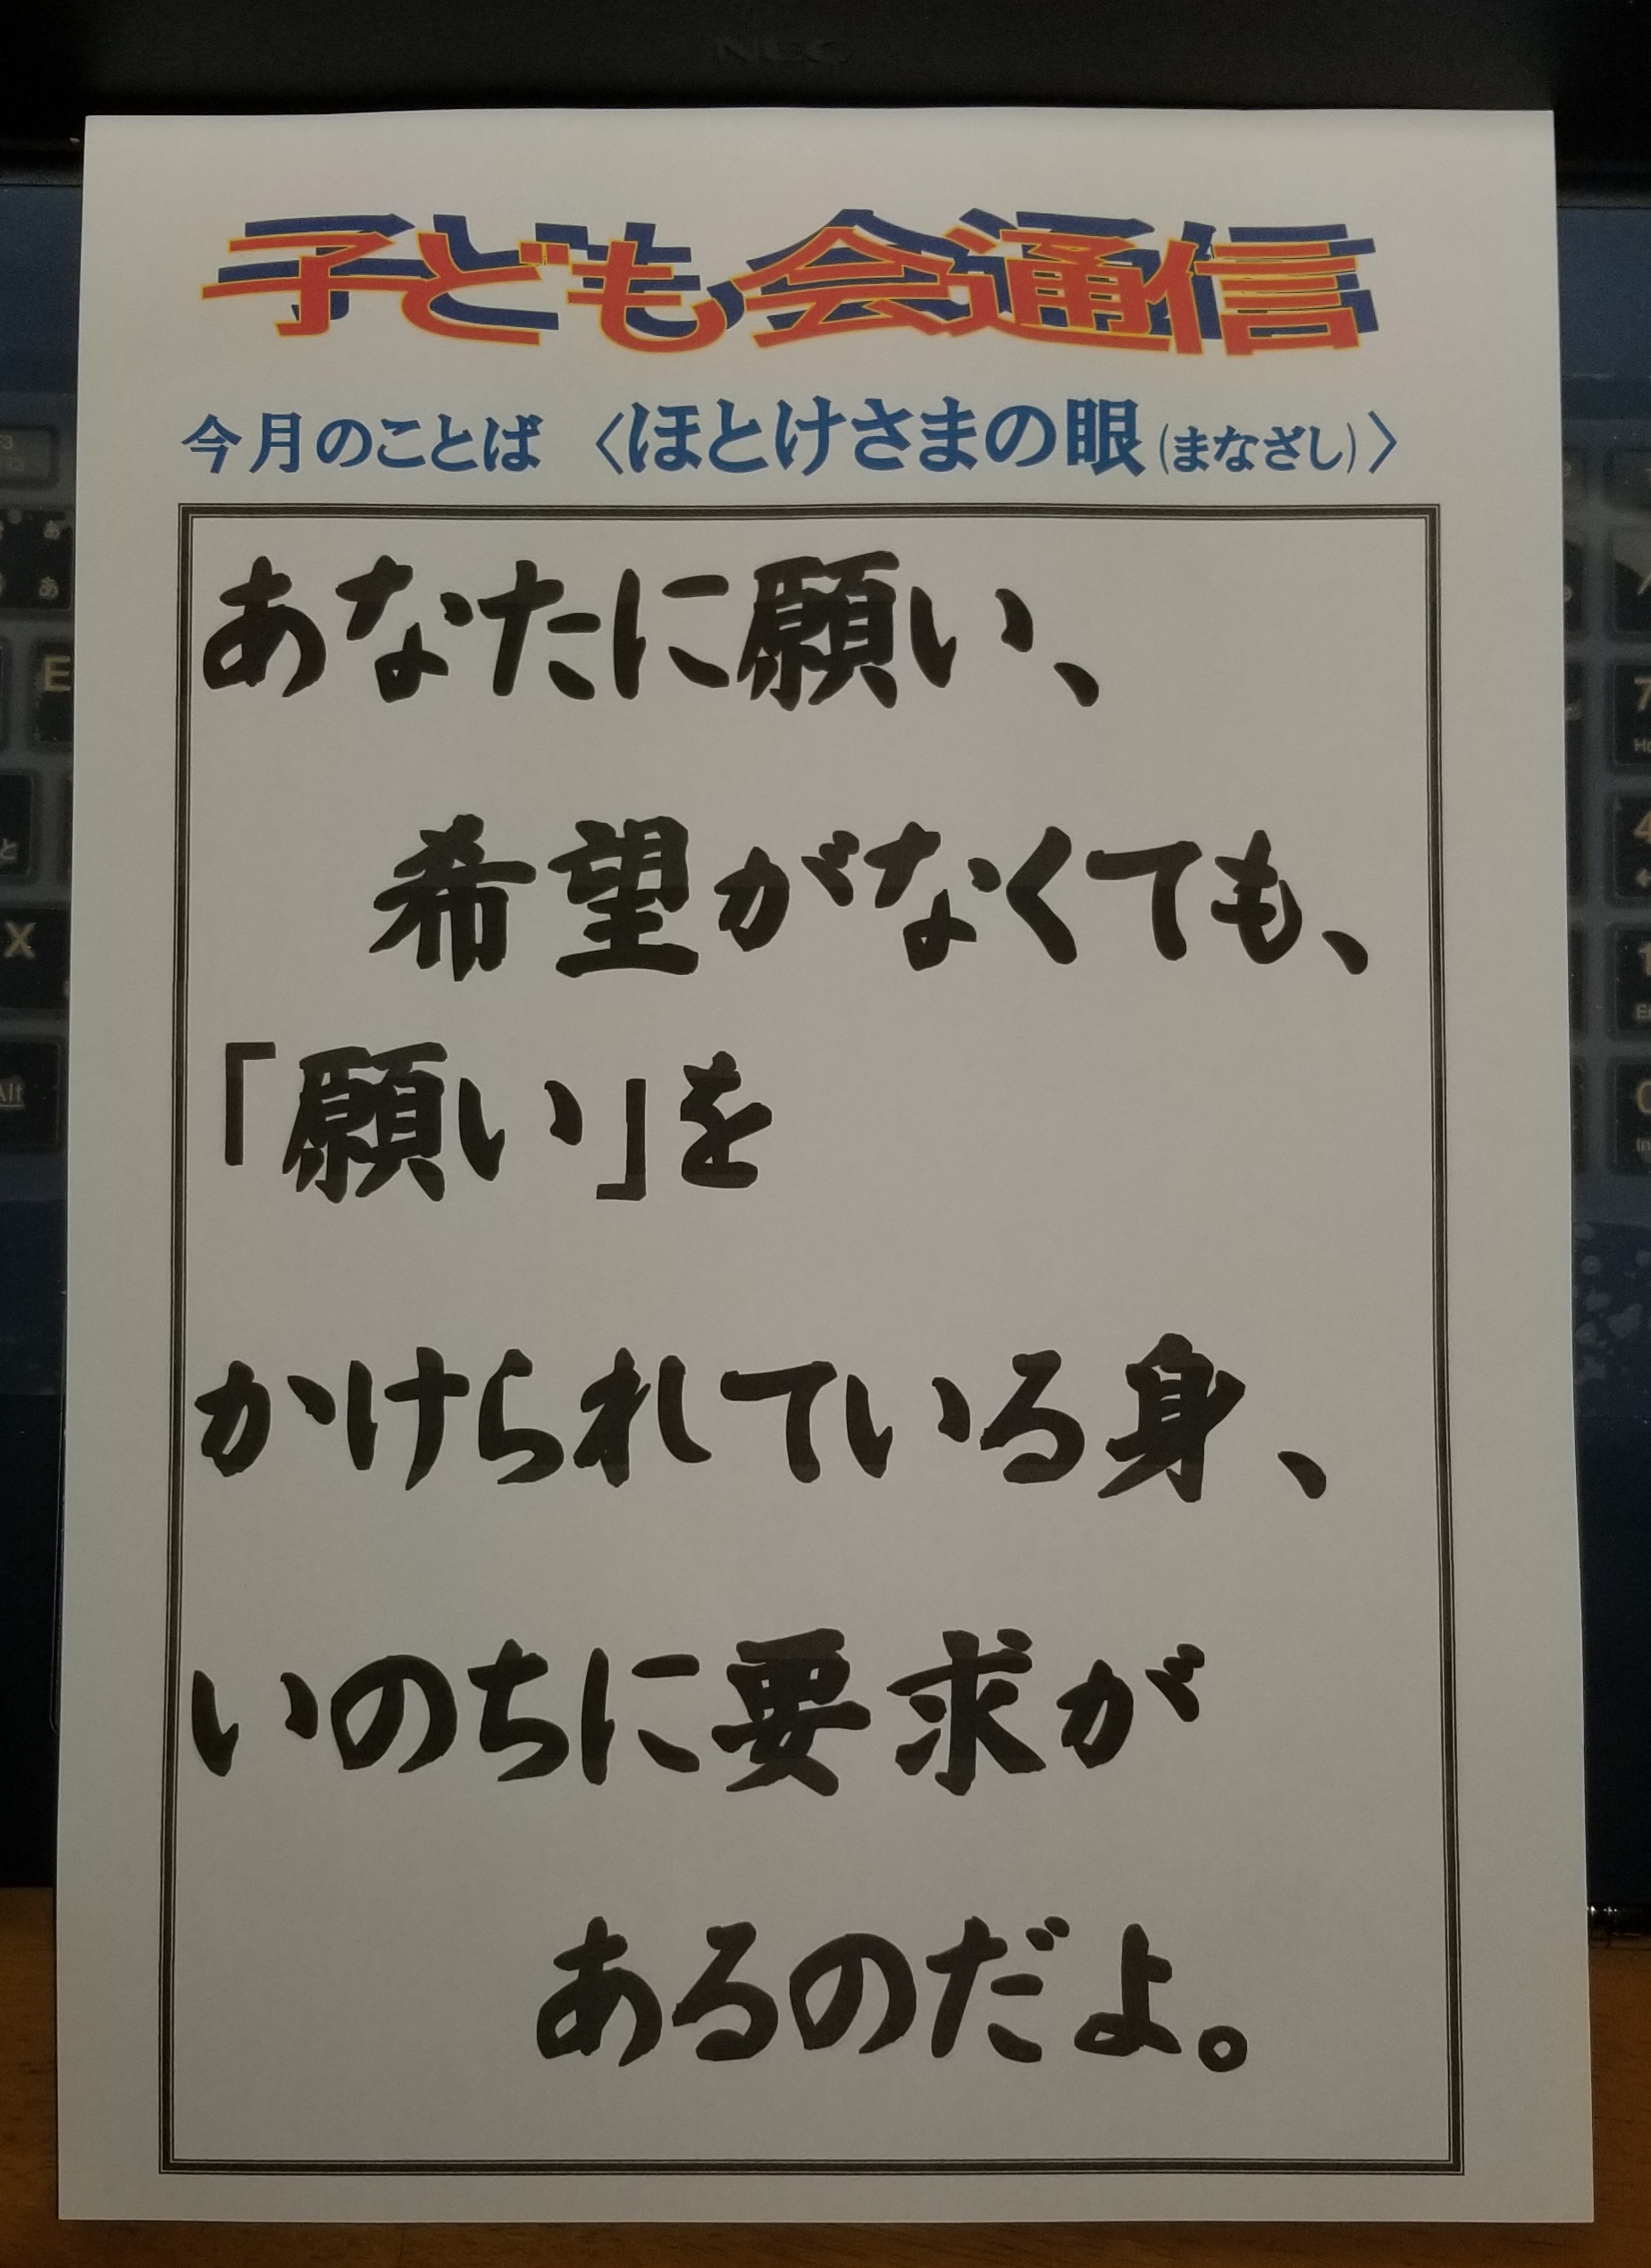 NEC
子ども会通信
今月のことば 〈ほとけさまの眼(まなざし)〉
あなたに願い、
希望がなくても、
「願い」を
かけられている身、
いのちに要求が
あるのだよ。
F3
あ
あ
E
と
X
Alt
7
4
1
0